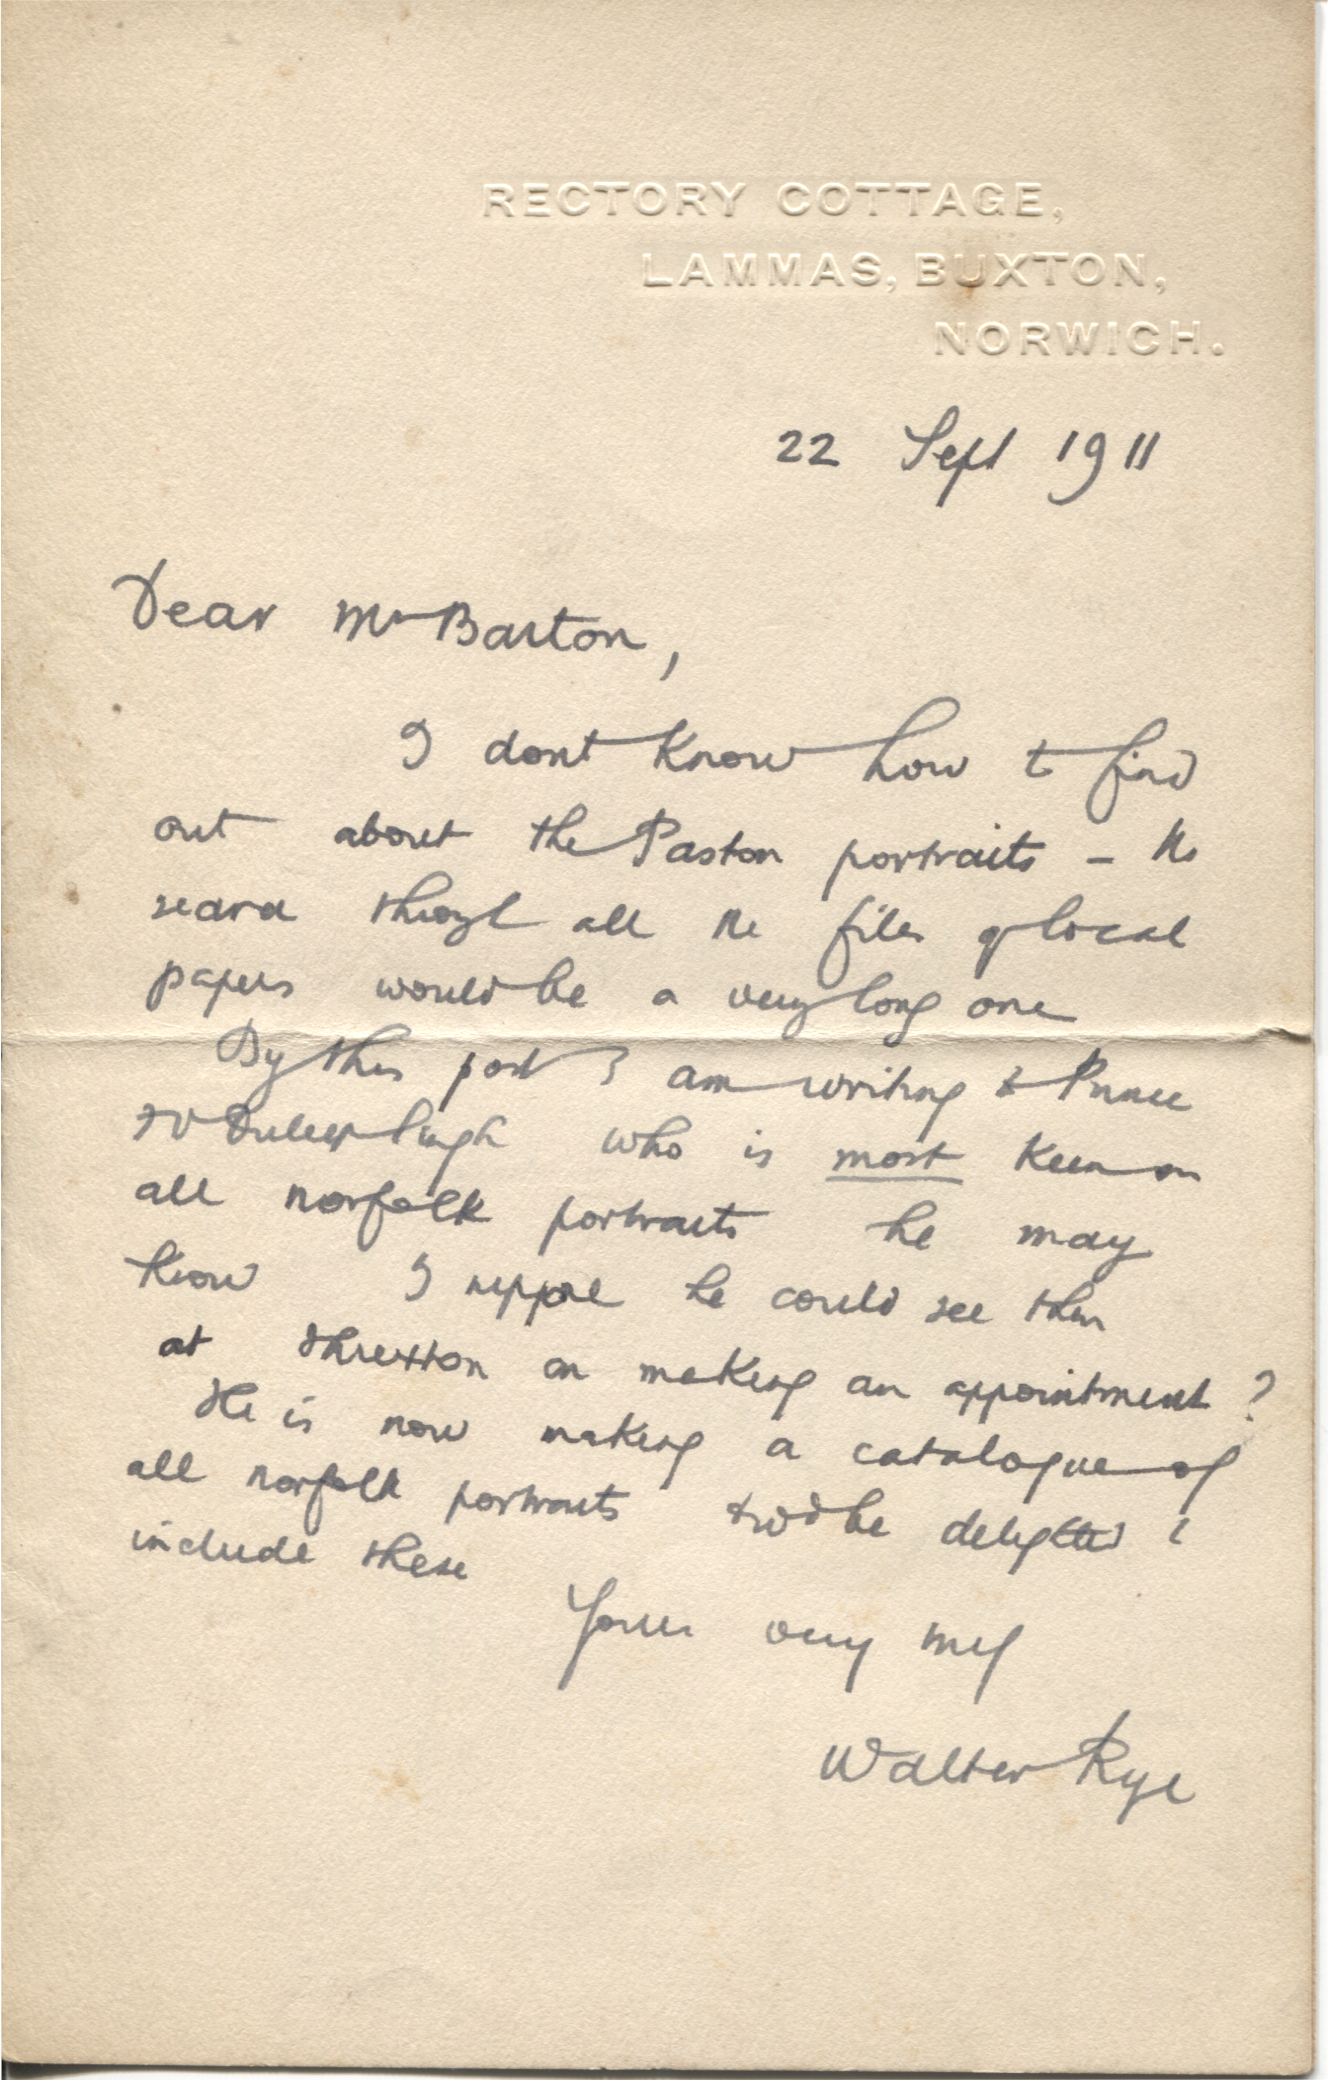 RECTORY COTTAGE,
LAMMAS, BUXTON,
NORWICH.
22 Sept 1911
Dear Mr Barton,
I dont know how to find
out about the Paston portraits – the
search through all the files of local
papers would be a very long one
By this post I am writing to Prince
F V Duleep Singh who is most keen on
all norfolk portraits he may
know I suppose he could see them
at Threxton on making an appointment?
He is now making a catalogue of
all norfolk portraits & wd be delighted to
include these
Yours very truly
Walter Rye